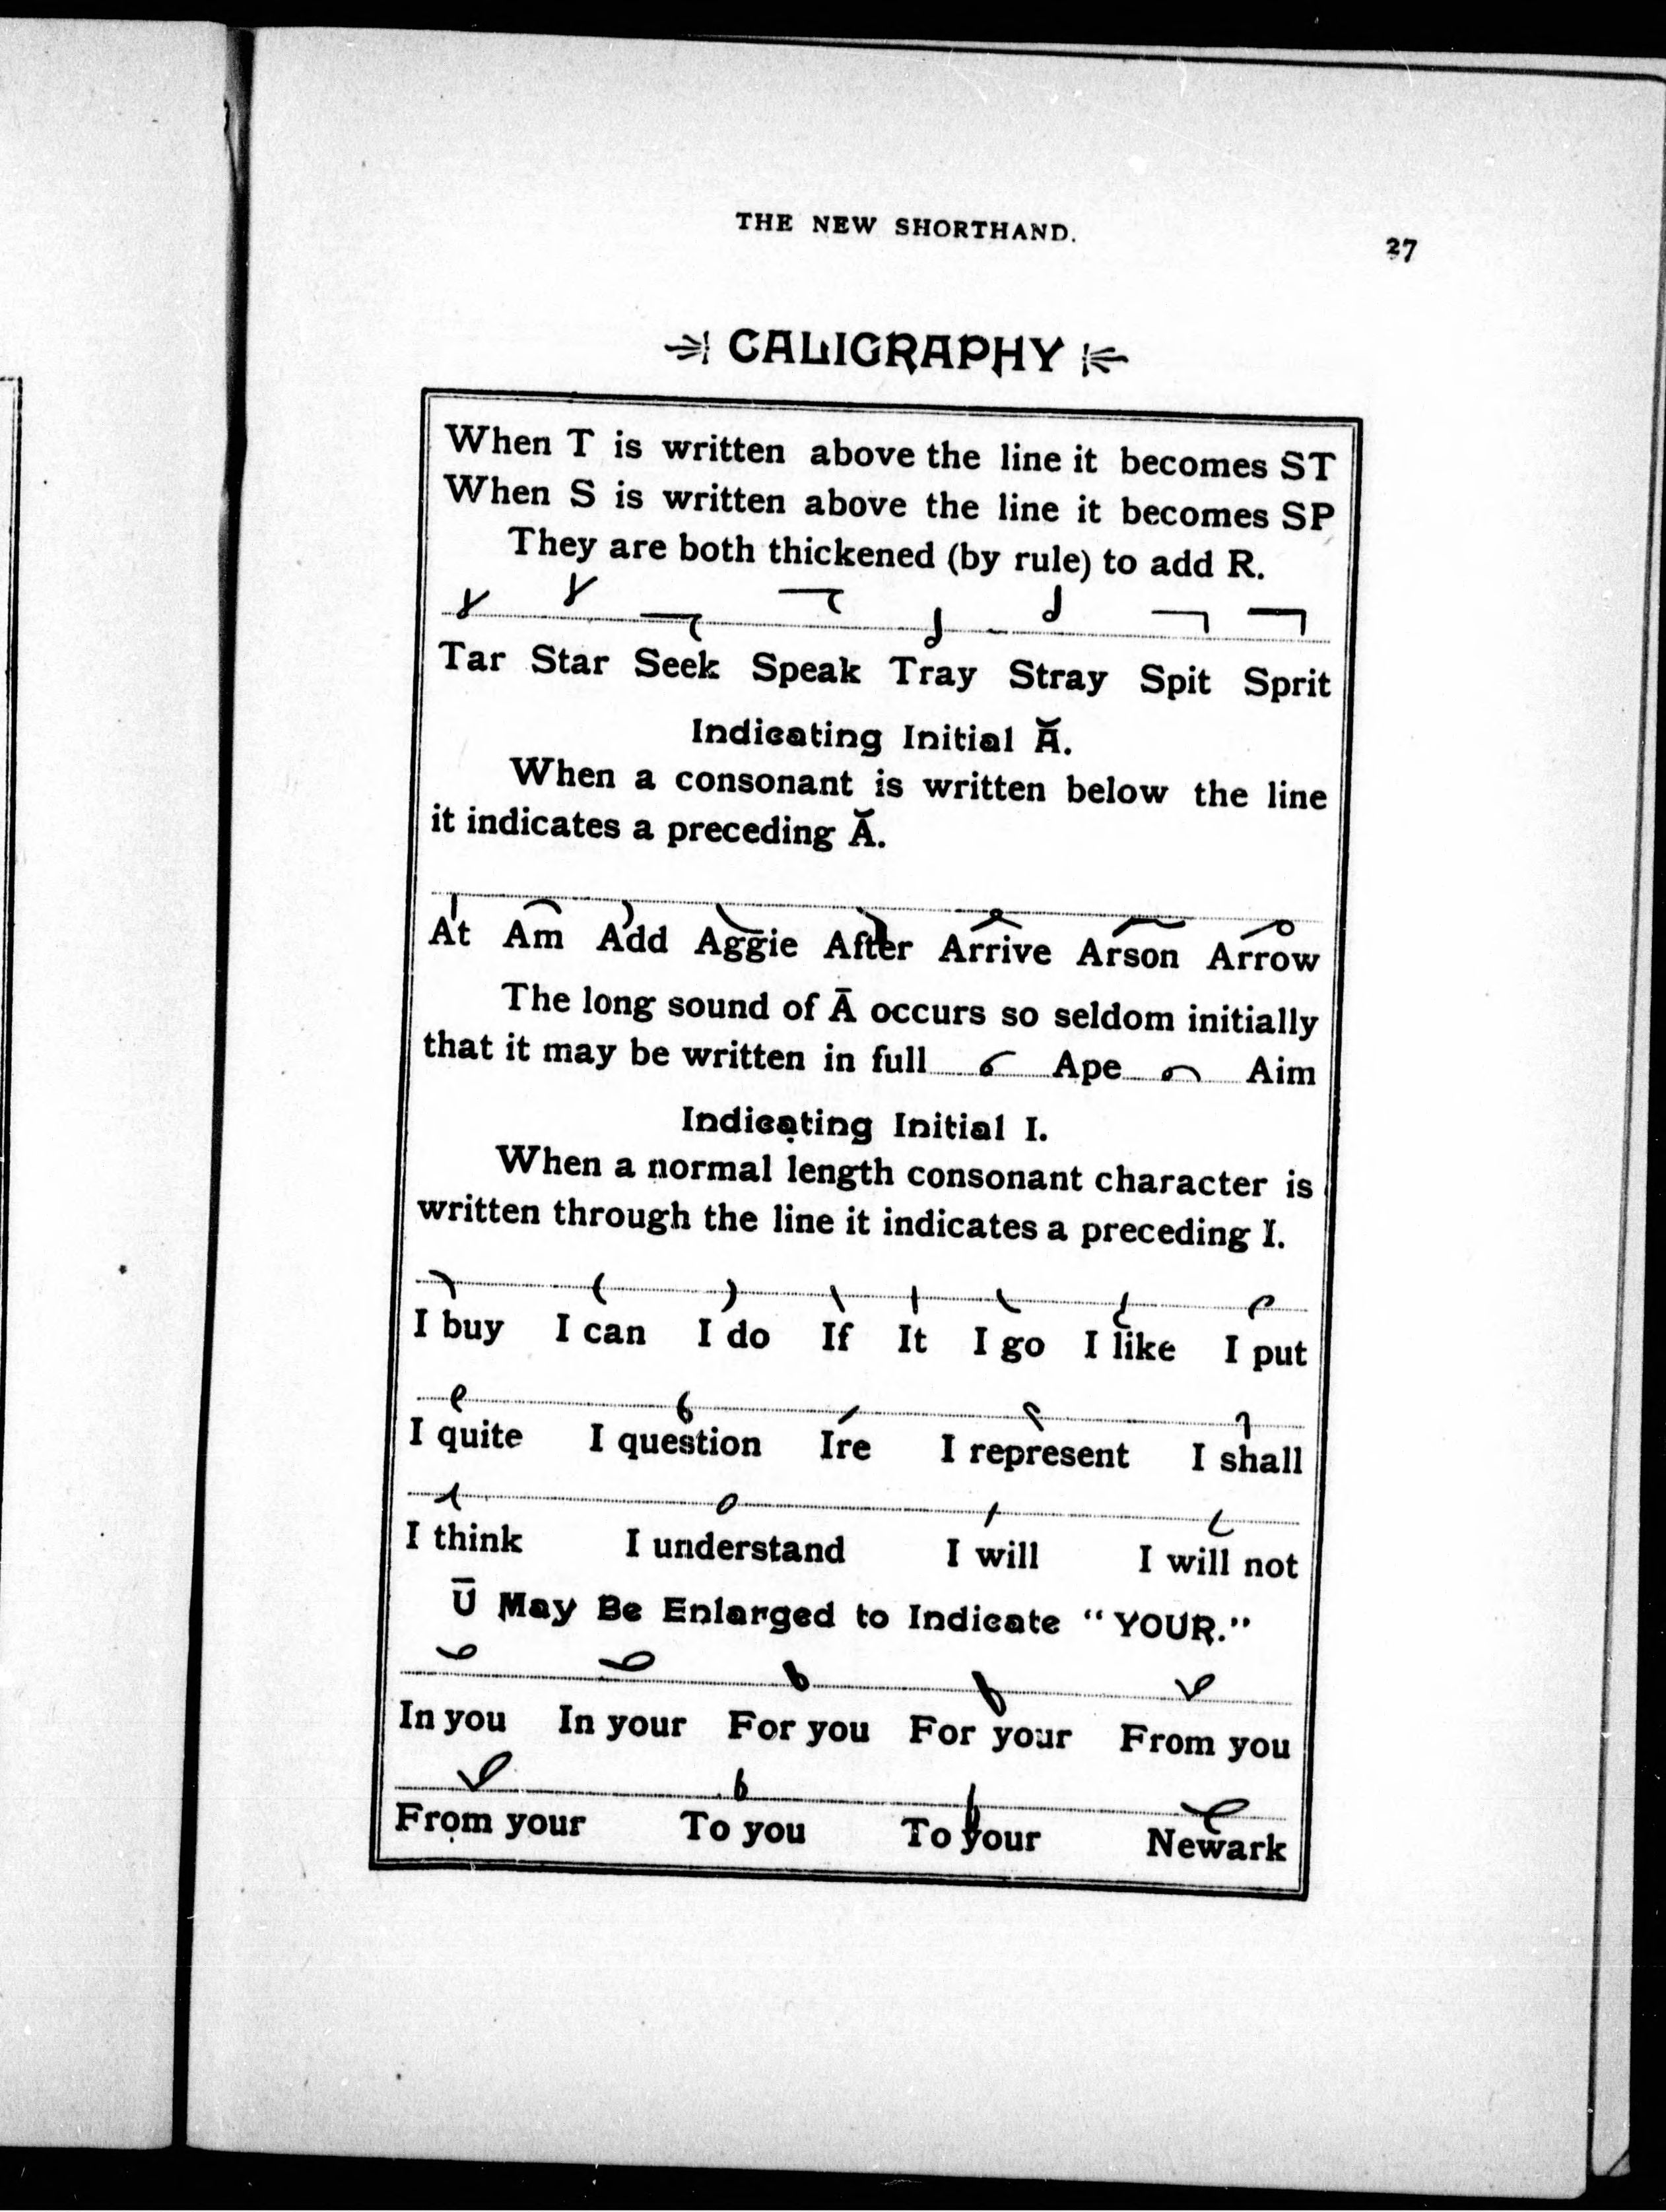 THE NEW SHORTHAND.
27
CALIGRAPHY
When T is written above the line it becomes ST
When S is written above the line it becomes SP
They are both thickened (by rule) to add R.
Tar Star Seek Speak Tray Stray Spit Sprit
Indicating Initial Ă.
When a consonant is written below the line
it indicates a preceding Ă.
At Am Add Aggie After Arrive Arson Arrow
The long sound of Ā occurs so seldom initially
that it may be written in full Ape Aim
Indicating Initial I.
When a normal length consonant character is
written through the line it indicates a preceding I.
I buy I can I do If It I go I like I put
I quite I question Ire I represent I shall
I think I understand I will I will not
Ū May Be Enlarged to Indicate “YOUR.”
In you In your For you For your From you
From your To you To your Newark